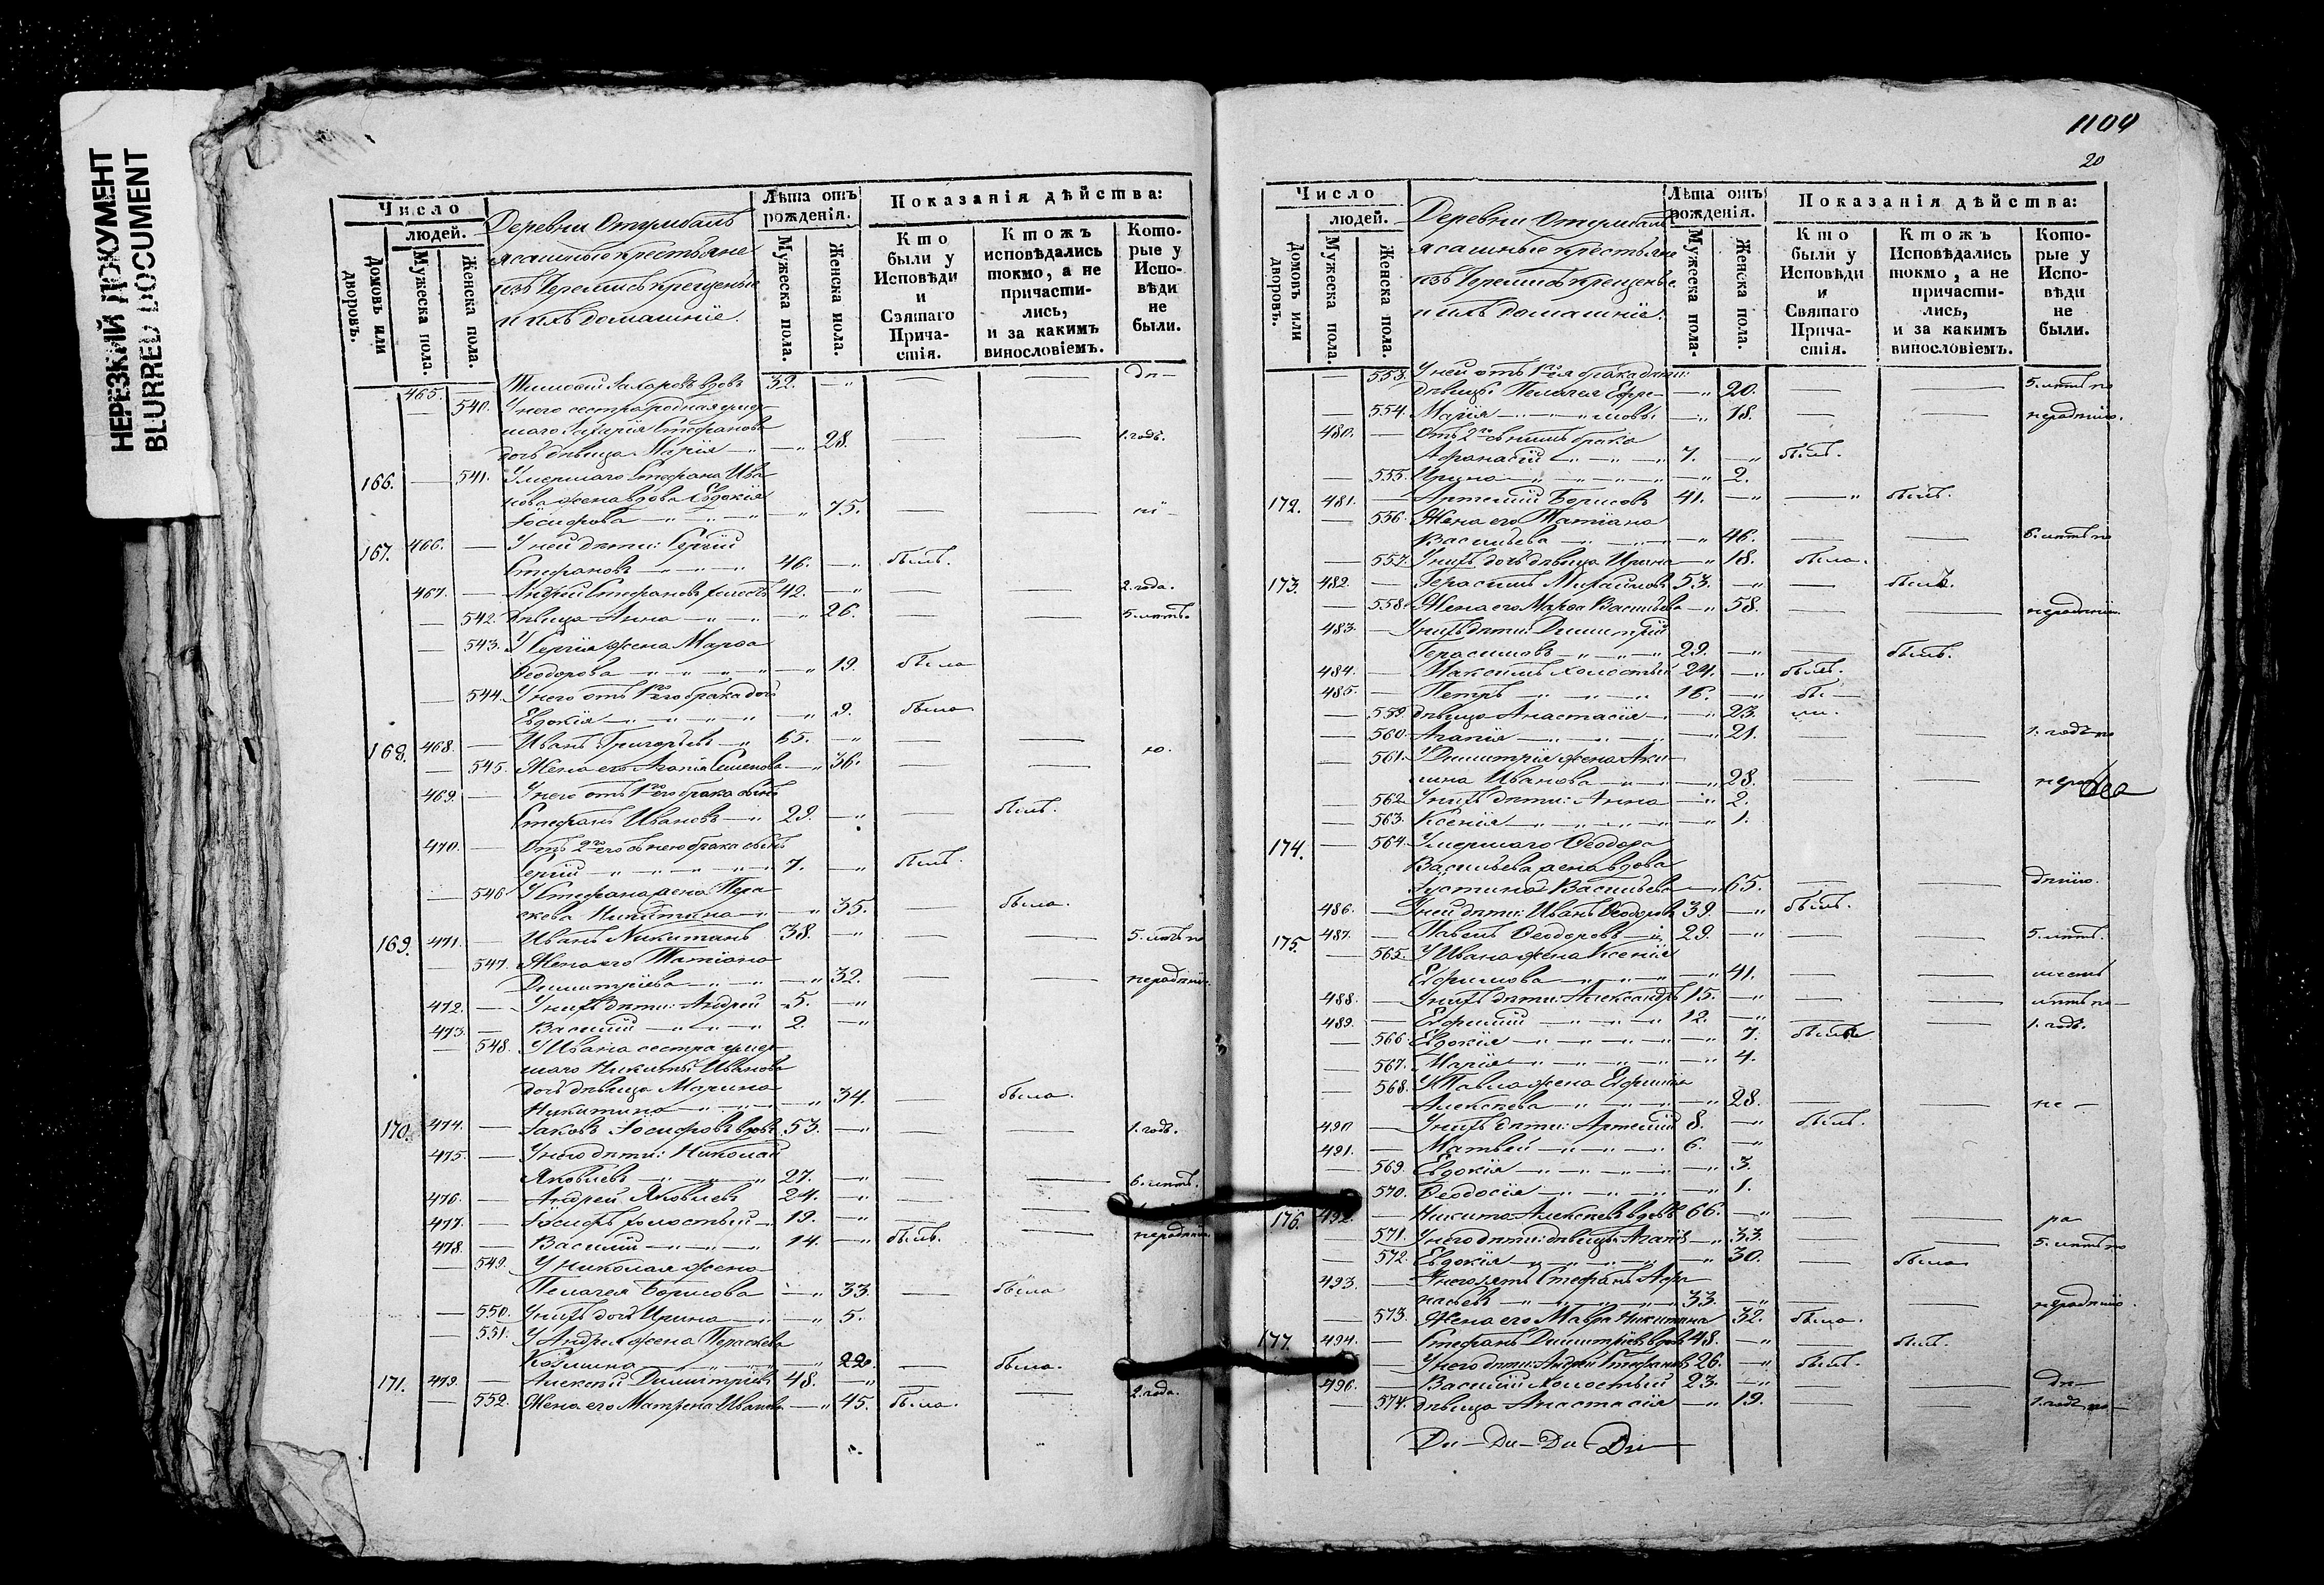 НЕРЕЗКИЙ ДОКУМЕНТ
BLURRED DOCUMENT
Число
людей.
Домовъ или дворовъ.
Мужеска пола.
Женска пола.
Деревни
ясашные крестьяне
изъ Черемисъ крещеные
и ихъ домашніе.
Лѣта отъ рожденія.
Мужеска пола.
Женска пола.
Показанія дѣйства:
Кто были у Исповѣди и Святаго Причастія.
Ктожъ исповѣдались токмо, а не причастились, и за какимъ винословіемъ.
Которые у Исповѣди не были.
465. — Тимофей Захаровъ вдовъ 32. — „ — — ди —
— 540. У него сестра родная умер-
шаго Захарія Стефанова
дочь дѣвица Марія — „ — „ 28. — — 1. годъ.
166. — 541. Умершаго Стефана Ива-
нова жена вдова Евдокія
Іосифова — „ — „ — „ 75. — —
167. 466. — У ней дѣти: Сергій
Стефановъ — „ — „ 46. — „ былъ.
467. — Андрей Стефановъ холостъ 42. — „ — — 2. года.
— 542. Дѣвица Анна — „ — „ — „ 26. — — 5. лѣтъ.
— 543. У Сергія жена Марѳа
Ѳеодорова — „ — „ — „ 19. была
— 544. У него отъ 1го его брака дочь
Евдокія — „ — „ — „ 9. была
168. 468. — Иванъ Григорьевъ — „ 65. — „ — —
— 545. Жена его Агапія Семенова — „ 36. — — ю.
469. — У него отъ 1го его брака сынъ
Стефанъ Ивановъ — „ 29. — „ — былъ.
470. — Отъ 2го его съ нею брака сынъ
Сергій — „ — „ — „ 7. — „ былъ.
— 546. У Стефана жена Пара-
скева Никитина — „ — „ 35. — была.
169. 471. — Иванъ Никитинъ 38. — „ — — 5. лѣтъ по
— 547. Жена его Татіана
Димитріева — „ — „ — „ 32. — — нерадѣнію.
472. — У нихъ дѣти: Андрей 5. — „
473. — Василій — „ — „ 2. — „
— 548. У Ивана сестра умер-
шаго Никиты Иванова
дочь дѣвица Марина
Никитина — „ — „ — „ 34. — была.
170. 474. — Іаковъ Іосифовъ вдовъ 53. — „ — — 1. годъ.
475. — У него дѣти: Николай
Яковлевъ — „ — „ 27. — „ — — 6. лѣтъ.
476. — Андрей Яковлевъ 24. — „ — —
477. — Іосифъ холостый — 19. — „ — —
478. — Василій — „ — „ 14. — „ былъ. — нерадѣнію.
— 549. У Николая жена
Пелагея Борисова — „ 33. — была
— 550. У нихъ дочь Ирина — „ — „ 5.
— 551. У Андрея жена Параскева
Козьмина — „ 22. — была.
171. 479. — Алексѣй Димитріевъ 48. — „ — —
— 552. Жена его Матрена Иванова — „ 45. была. — 2. года.
1109
20
Число
людей.
Домовъ или дворовъ.
Мужеска пола.
Женска пола.
Деревни
ясашные крестьяне
изъ Черемисъ крещеные
и ихъ домашніе.
Лѣта отъ рожденія.
Мужеска пола.
Женска пола.
Показанія дѣйства:
Кто были у Исповѣди и Святаго Причастія.
Ктожъ Исповѣдались токмо, а не причастились, и за какимъ винословіемъ.
Которые у Исповѣди не были.
— 553. У ней отъ 1го ея брака дѣти:
дѣвицы: Пелагія Ефре- — „ 20. — — 5. лѣтъ по
— 554. Марія — „ — „ мовы — „ 18. — — нерадѣнію.
480. — Отъ 2го съ нимъ брака
Аѳанасій — „ — „ 7. — „ былъ.
— 555. Ирина — „ — „ — „ 2.
172. 481. — Артемій Борисовъ 41. — „ — „ былъ.
— 556. Жена его Татіана
Васильева — „ — „ 46. — — 6. лѣтъ по
— 557. У нихъ дочь дѣвица Ирина — „ 18. была.
173. 482. — Герасимъ Михайловъ 53. — „ — былъ.
— 558. Жена его Марѳа Васильева — „ 58. — — нерадѣнію.
483. — У нихъ дѣти: Димитрій
Герасимовъ — „ — „ 29. — „ — былъ.
484. — Максимъ холостый 24. — „ былъ.
485. — Петръ — „ — „ 16. — „ бы —
— 559. дѣвица Анастасія — „ — „ 23. ли.
— 560. Агапія — „ — „ — „ 21. — — 1. годъ по
— 561. У Димитрія жена Аку-
лина Иванова — „ — „ 28. —
— 562. У нихъ дѣти: Анна — „ 2.
— 563. Ксенія — „ — „ — „ 1.
174. — 564. Умершаго Ѳеодора
Васильева жена вдова
Іустина Васильева — „ 65. — — дѣнію.
486. — У ней дѣти: Иванъ Ѳеодоровъ 39. — „ былъ.
175. 487. — Павелъ Ѳеодоровъ — „ 29. — „ — — 5. лѣтъ.
— 565. У Ивана жена Ксенія
Ефимова — „ — „ — „ 41. — —
488. — У нихъ дѣти: Александръ 15. — „ — — лѣтъ по —
489. — Ефимій — „ — „ 12. — „ — — 1. годъ.
— 566. Евдокія — „ — „ — „ 7. была
— 567. Марія — „ — „ — „ 4.
— 568. У Павла жена Ефимія
Алексѣева — „ — „ — „ 28. — — не —
490. — У нихъ дѣти: Артемій 8. — „ былъ.
491. — Матвей — „ — „ 6. — „
— 569. Евдокія — „ — „ — „ 3.
— 570. Ѳеодосія — „ — „ — „ 1.
176. 492. — Никита Алексѣевъ вдовъ 66. — „ — — ра
— 571. У него дѣти: дѣвицы: Агапія — „ 33. — — 5. лѣтъ по
— 572. Евдокія — „ — „ — „ 30. — была
493. — У него зять Стефанъ Аѳа-
насьевъ — „ — „ 33. — „ — — нерадѣнію.
— 573. Жена его Мавра Никитина 32. была.
177. 494. — Стефанъ Димитріевъ вдовъ 48. — „ — былъ.
— У него дѣти: Андрей Стефановъ 26. — „ былъ.
496. — Василій холостый 23. — „ — — дѣ —
— 574. дѣвица Анастасія — „ 19. — — 1. годъ по —